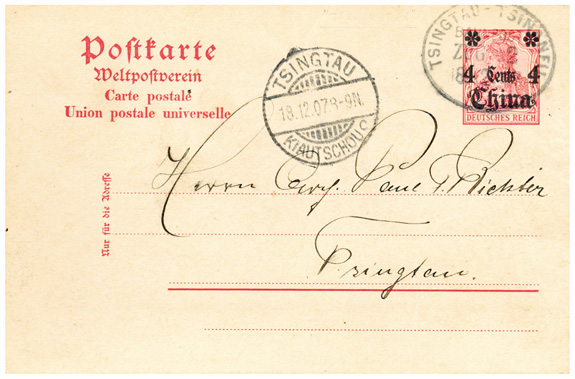 Postkarte
Weltpostverein
Carte postale
Union postale universelle
TSINGTAU
18.12.07.8-9N.
KIAUTSCHOU
TSINGTAU - TSINANFU
4 Cents 4
China
DEUTSCHES REICH
Nur für die Adresse
Herrn
Paul
Richter
Tsingtau.